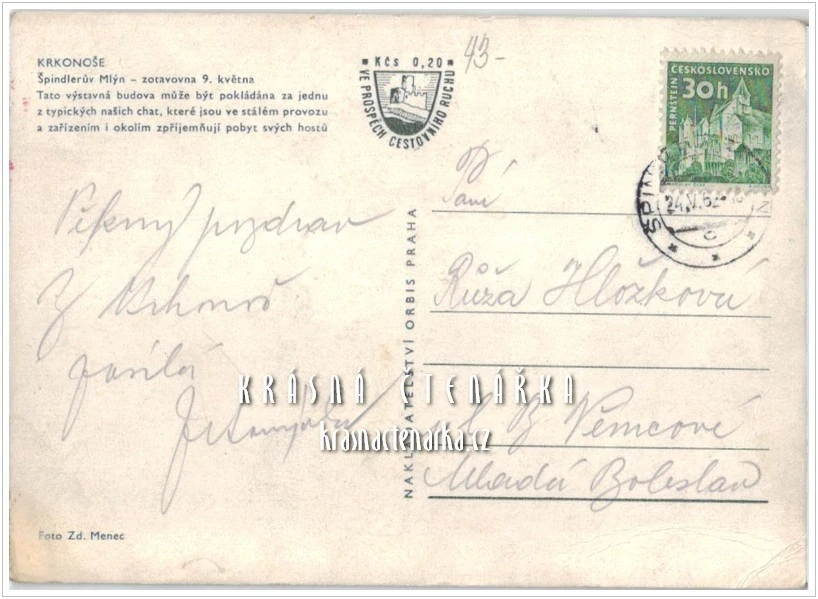 KRKONOŠE
Špindlerův Mlýn – zotavovna 9. května
Tato výstavná budova může být pokládána za jednu
z typických našich chat, které jsou ve stálém provozu
a zařízením i okolím zpříjemňují pobyt svých hostů
Kčs 0,20
VE PROSPĚCH CESTOVNÍHO RUCHU
43-
ČESKOSLOVENSKO
30h
PERNŠTEJN
24.V.62
Pěkný pozdrav
z Krkonoš
posílá
NAKLADATELSTVÍ ORBIS PRAHA
Paní
Růža Hložková
B Němcové
Mladá Boleslav
KRÁSNÁ ČTENÁŘKA
krasnactenarka.cz
Foto Zd. Menec